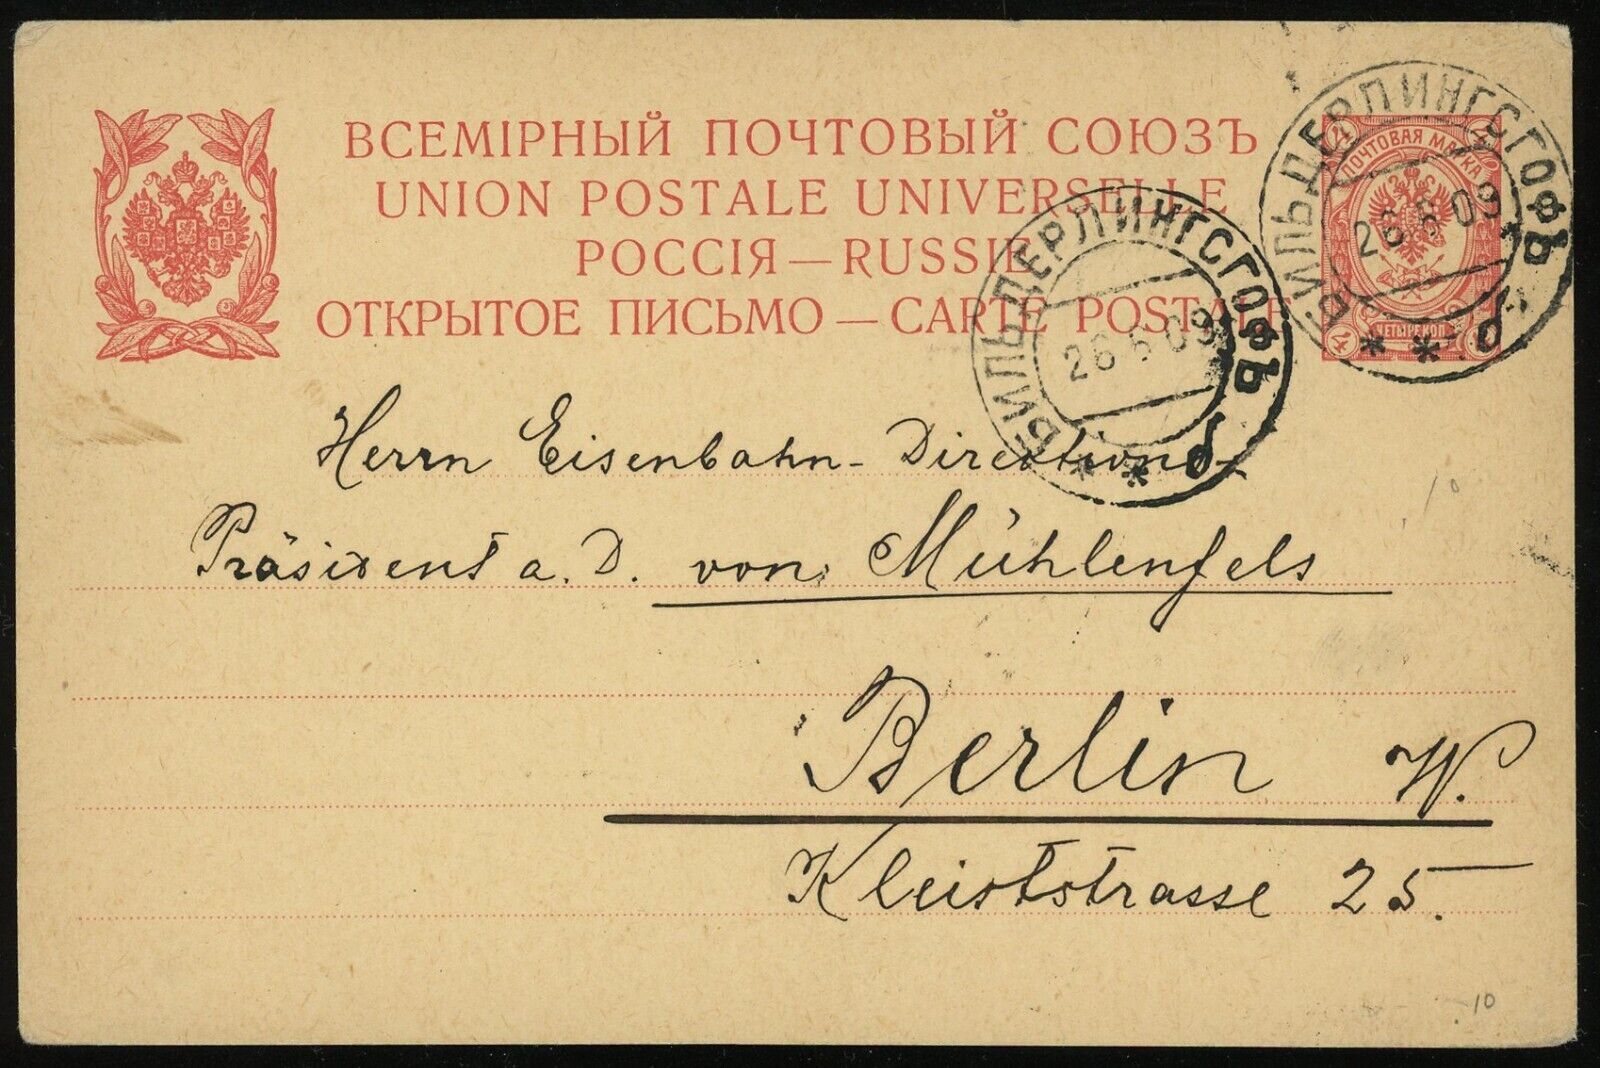 ВСЕМІРНЫЙ ПОЧТОВЫЙ СОЮЗЪ
UNION POSTALE UNIVERSELLE
РОССІЯ — RUSSIE
ОТКРЫТОЕ ПИСЬМО — CARTE POSTALE
4 4
ПОЧТОВАЯ МАРКА
ЧЕТЫРЕ КОП.
4
БИЛЬДЕРЛИНГСГОФЪ
26 6 09
* * б
БИЛЬДЕРЛИНГСГОФЪ
26 6 09
* * б
Herrn Eisenbahn- Direktions-
Präsident a. D. von Mühlenfels
Berlin W.
Kleiststrasse 25.
10
10